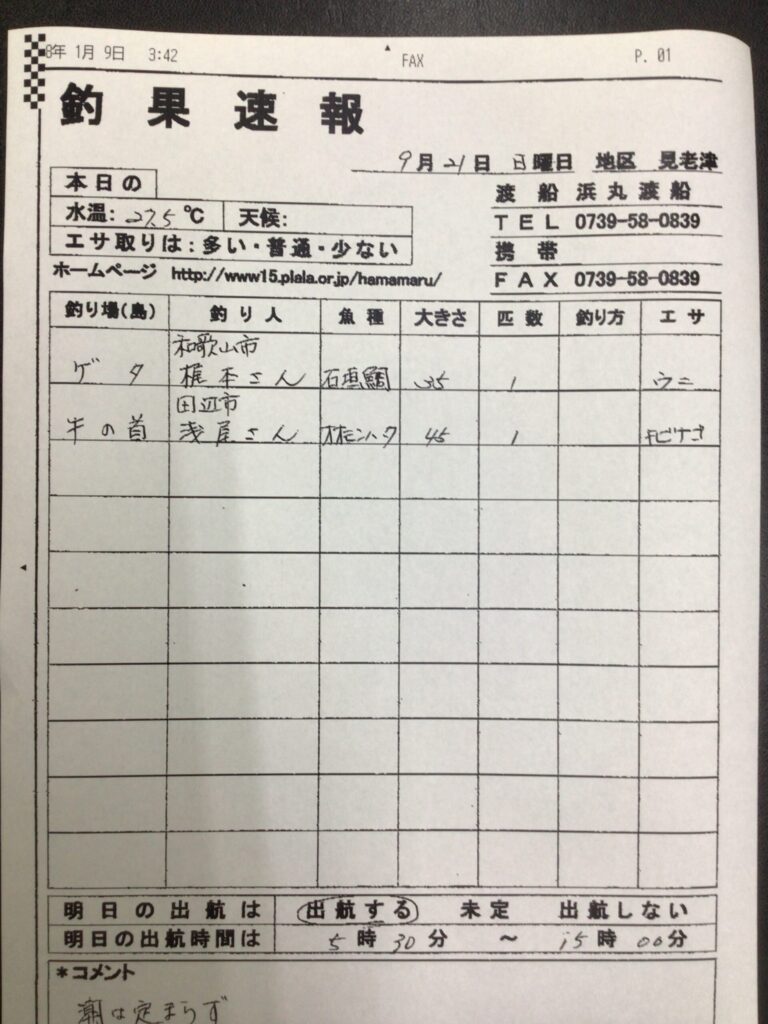 8年 1月 9日 3:42 FAX P. 01
釣果速報
9月21日 日曜日 地区 見老津
本日の
水温: 27.5℃ 天候:
エサ取りは:多い・普通・少ない
渡船 浜丸渡船
TEL 0739-58-0839
携帯
FAX 0739-58-0839
ホームページ http://www15.plala.or.jp/hamamaru/
釣り場(島) 釣り人 魚種 大きさ 匹数 釣り方 エサ
和歌山市
ゲタ 梶本さん 石垣鯛 35 1 ウニ
田辺市
牛の首 浅尾さん オオモンハタ 45 1 キビナゴ
明日の出航は 出航する 未定 出航しない
明日の出航時間は 5時30分 ~ 15時00分
*コメント
潮は定まらず